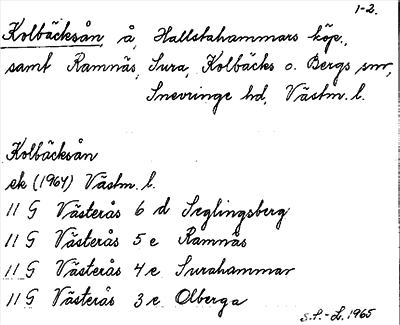 1-2.
Kolbäcksån, å, Hallstahammars köp.,
samt Ramnäs, Sura, Kolbäcks o. Bergs snr,
Snevringe hd, Västm. l.
Kolbäcksån
ek (1964) Västm. l.
11 G Västerås 6 d Seglingsberg
11 G Västerås 5 e Ramnäs
11 G Västerås 4 e Surahammar
11 G Västerås 3 e Olberga
S.F.-L. 1965